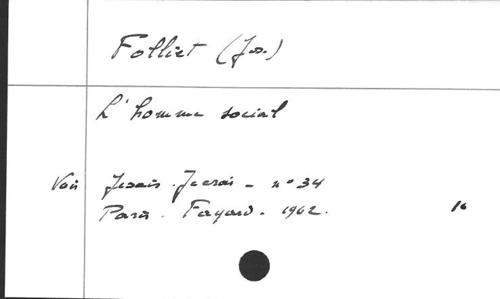 Folliet (Jos.)
L'homme social
Voir Je sais - Je crois - n° 34
Paris. Fayard. 1962.
16